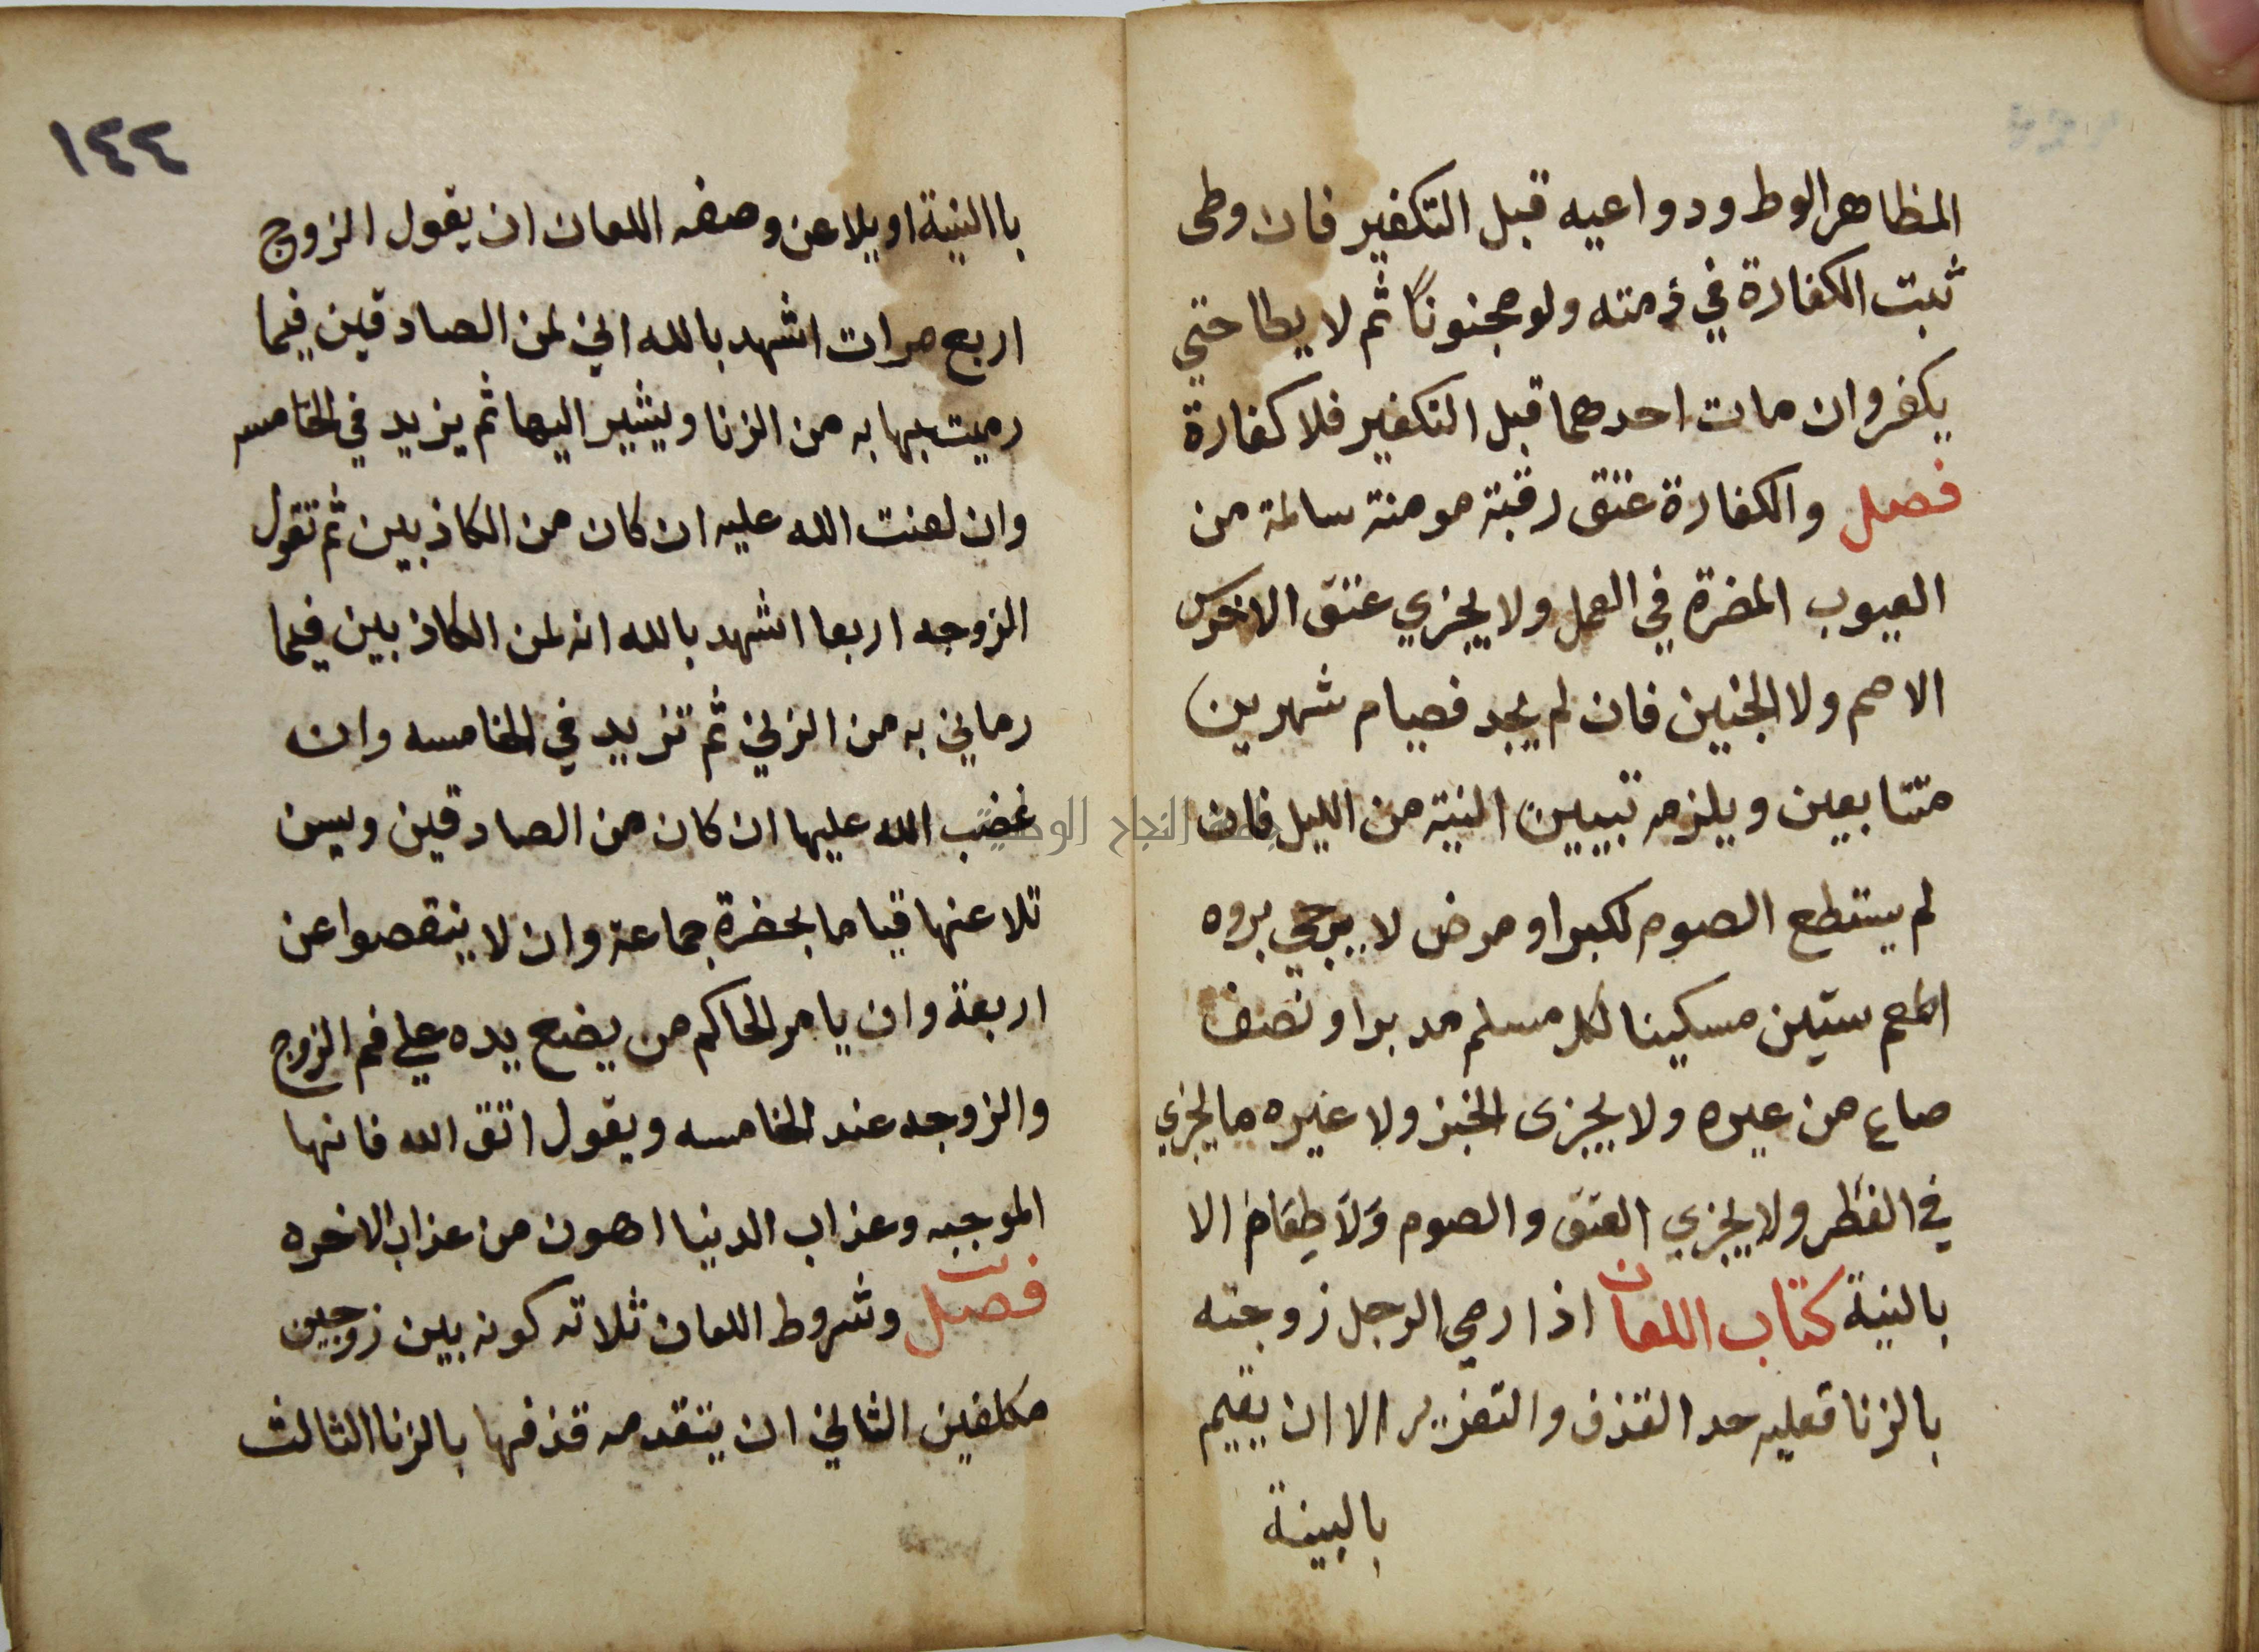 المظاهر الوطء ودواعيه قبل التكفير فان وطى
ثبت الكفارة في ذمته ولو مجنوناً ثم لا يطا حتي
يكفر وان مات احدهما قبل التكفير فلا كفارة
فصل والكفارة عتق رقبة مومنة سالمة من
العيوب المضرة في العمل ولا يجزي عتق الاخرس
الاصم ولا الجنين فان لم يجد فصيام شهرين
متتابعين ويلزمه تبييت النية من الليل فان
لم يستطع الصوم لكبر او مرض لا يرجي بروه
اطعم ستين مسكينا لكل مسلم مد برا ونصف
صاع من غيره ولا يجزى الخبز ولا غيره ما يجزي
في الفطر ولا يجزي العتق والصوم وَلَا طِعَام الا
بالنية كتاب اللعان اذا رمي الرجل زوجته
بالزنا فعليه حد القذف والتعزير الا ان يقيم
بالبينة
١٤٤
باالنية او يلاعن وصفه اللعان ان يقول الزوج
اربع مرات اشهد بالله اني لمن الصادقين فيما
رميت بها به من الزنا ويشير اليها ثم يزيد في الخامسه
وان لعنت الله عليه ان كان من الكاذبين ثم تقول
الزوجه اربعا اشهد بالله انه لمن الكاذبين فيما
رماني به من الزني ثم تزيد في الخامسه وان
غضب الله عليها ان كان من الصادقين ويسن
تلاعنها قياما بحضرة جماعة وان لا ينقصوا عن
اربعة وان يامر الحاكم من يضع يده علي فم الزوج
والزوجه عند الخامسه ويقول اتق الله فانها
الموجبه وعذاب الدنيا اهون من عذاب الاخره
فصل وشروط اللعان ثلاثه كونه بين زوجين
مكلفين الثاني ان يتقدمه قذفها بالزنا الثالث